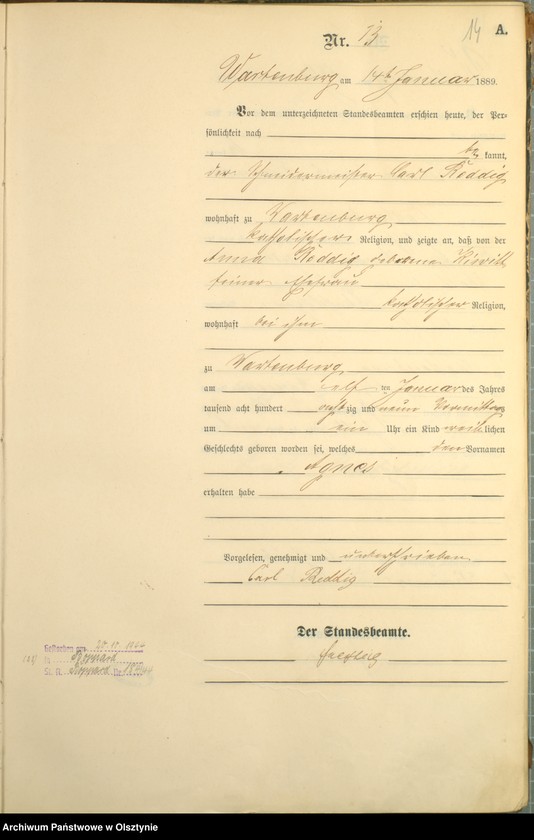 14 A.
Nr. 13
Wartenburg am 14ten Januar 1889.
Vor dem unterzeichneten Standesbeamten erschien heute, der Per-
sönlichkeit nach
be kannt,
der Schneidermeister Carl Reddig
wohnhaft zu Wartenburg
katholischer Religion, und zeigte an, daß von der
Anna Reddig geborene
seiner Ehefrau
katholischer Religion,
wohnhaft bei ihm
zu Wartenburg
am elf ten Januar des Jahres
tausend acht hundert acht zig und neun Vormittags
um ein Uhr ein Kind weib lichen
Geschlechts geboren worden sei, welches den Vornamen
Agnes
erhalten habe
Vorgelesen, genehmigt und unterschrieben
Carl Reddig
Der Standesbeamte.
Gestorben am
St. A. Nr.
Archiwum Państwowe w Olsztynie